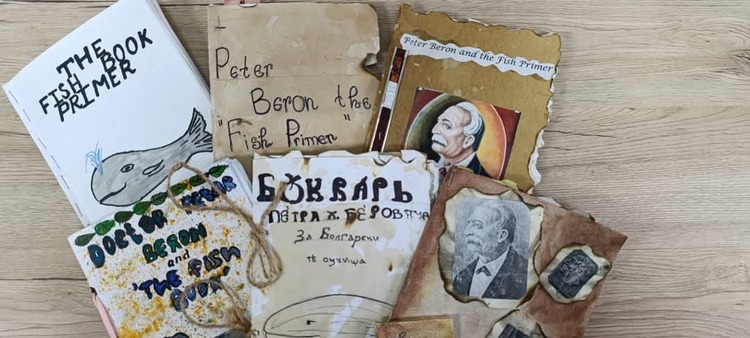 THE
FISH BOOK
PRIMER
Peter
Beron the
"Fish Primer"
Peter Beron and the Fish Primer
DOCTOR PETAR
BERON
and
"THE FISH
BOOK"
БȢКВАРЬ
ПЕТРА Х. БЕРОВИЧА
За Болгарски